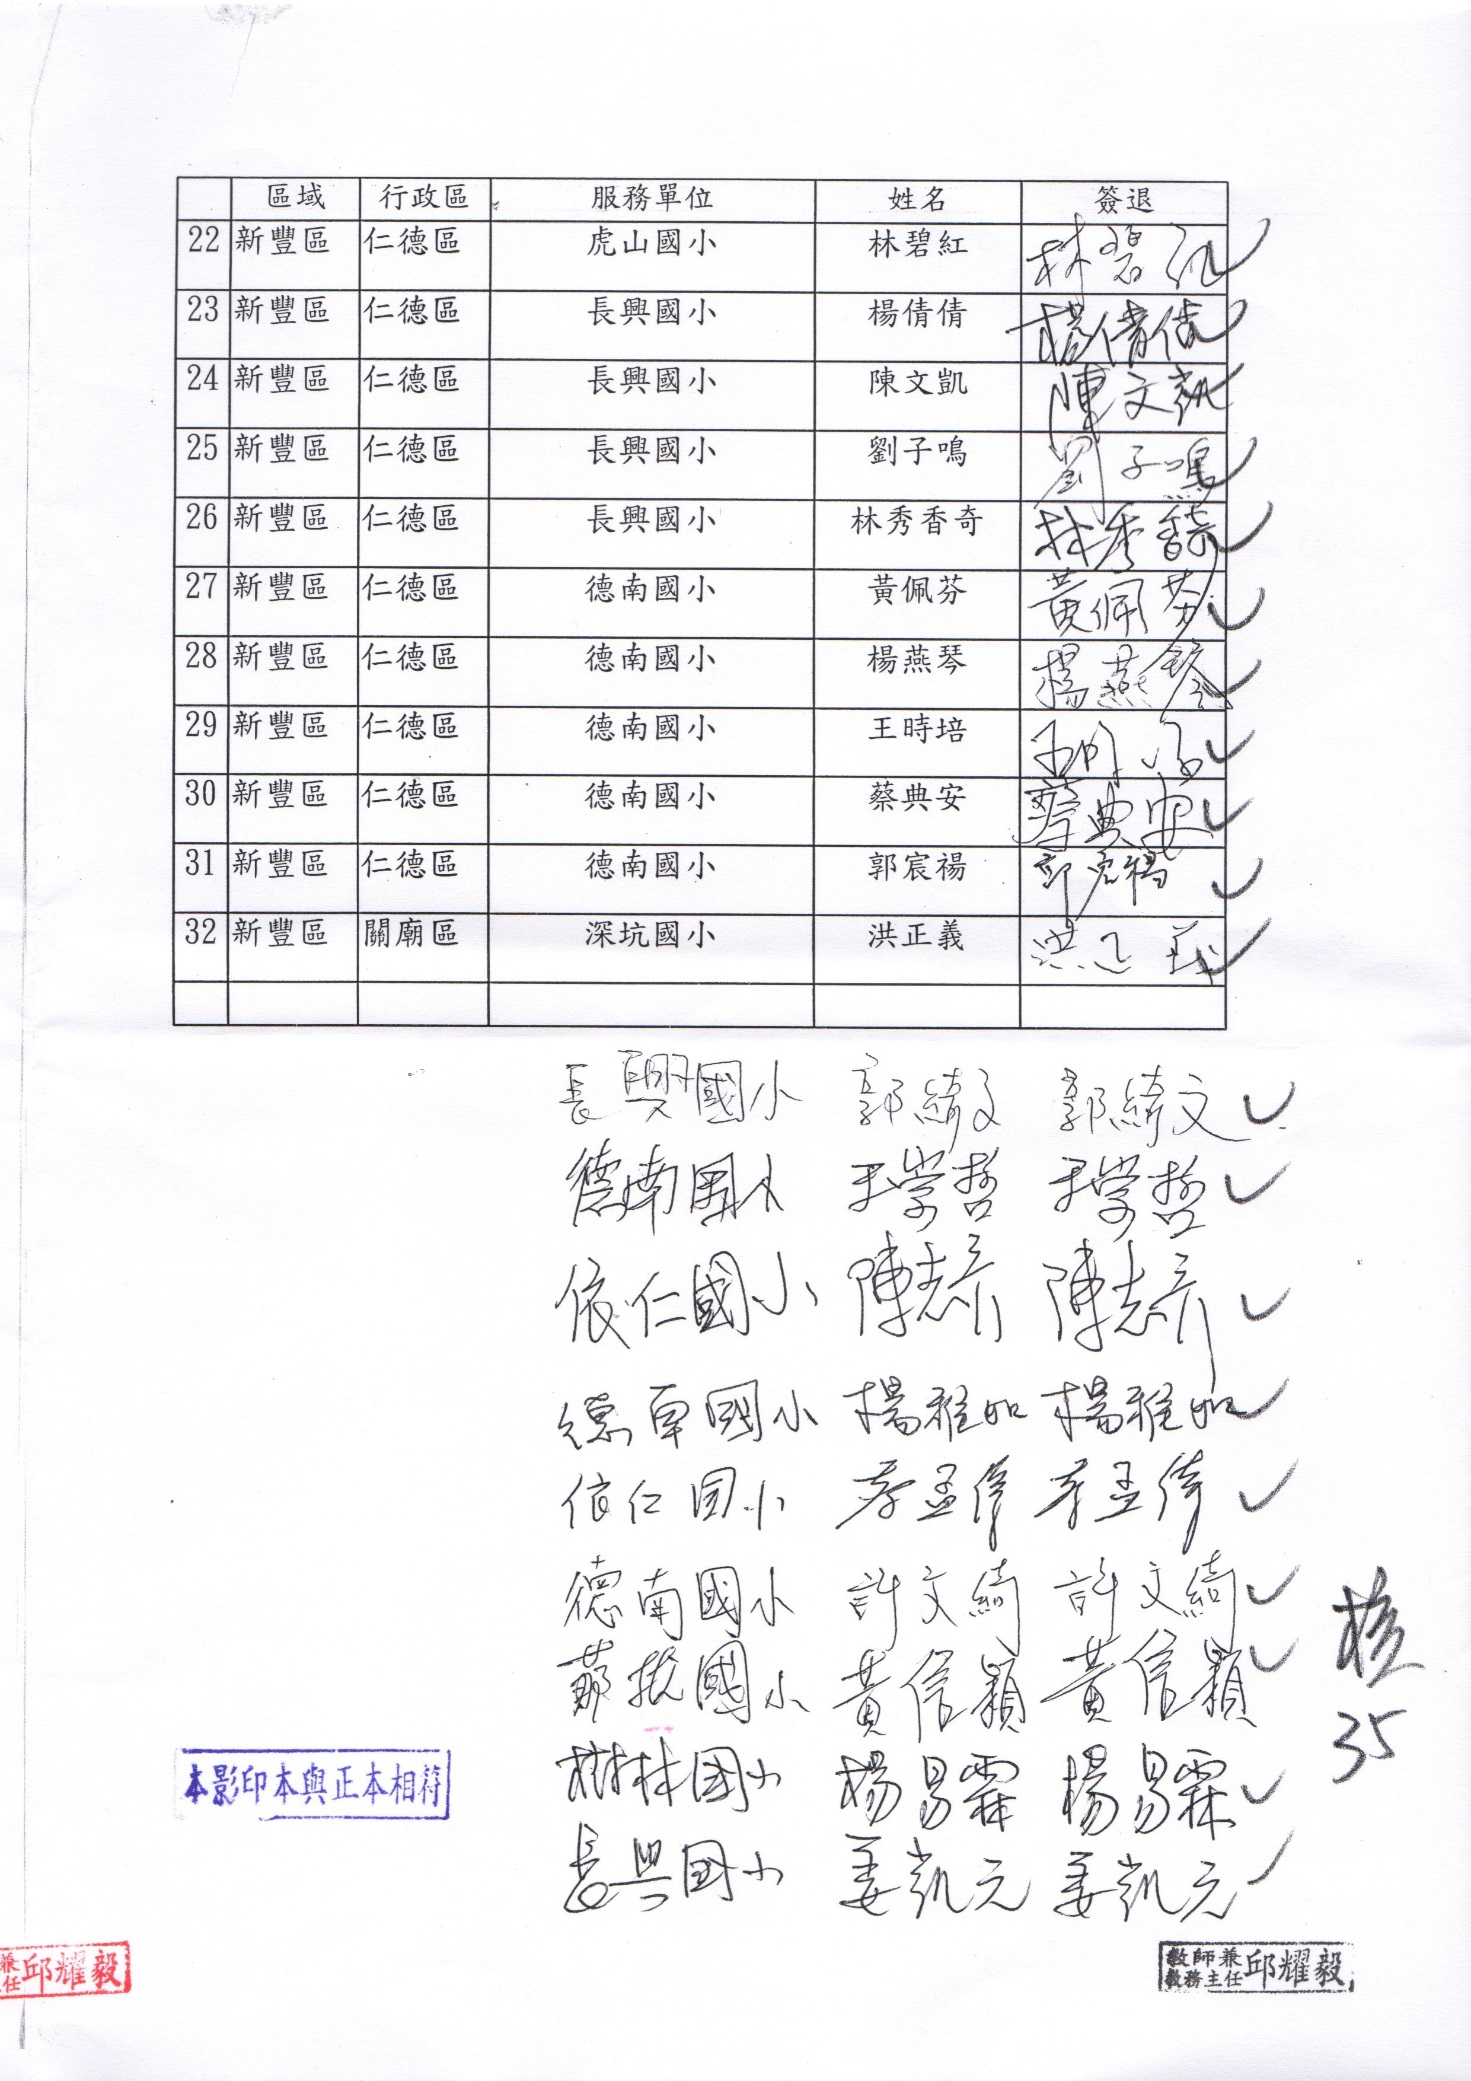 區域 行政區 服務單位 姓名 簽退
22 新豐區 仁德區 虎山國小 林碧紅 林碧紅
23 新豐區 仁德區 長興國小 楊倩倩 楊倩倩
24 新豐區 仁德區 長興國小 陳文凱 陳文凱
25 新豐區 仁德區 長興國小 劉子鳴 劉子鳴
26 新豐區 仁德區 長興國小 林秀香奇 林秀香奇
27 新豐區 仁德區 德南國小 黃佩芬 黃佩芬
28 新豐區 仁德區 德南國小 楊燕琴 楊燕琴
29 新豐區 仁德區 德南國小 王時培
30 新豐區 仁德區 德南國小 蔡典安 蔡典安
31 新豐區 仁德區 德南國小 郭宸禓 郭宸禓
32 新豐區 關廟區 深坑國小 洪正義 洪正義
長興國小 郭綺文 郭綺文
德南國小 王學哲 王學哲
依仁國小 陳志彥 陳志彥
德南國小 楊雅如 楊雅如
依仁国小 李孟偉 李孟偉
德南國小 許文綺 許文綺
國小 黃信穎 黃信穎
樹林國小 楊易霖 楊易霖
長興国小 姜凱元 姜凱元
核
35
本影印本與正本相符
兼
任 邱耀毅
教師兼
教務主任 邱耀毅